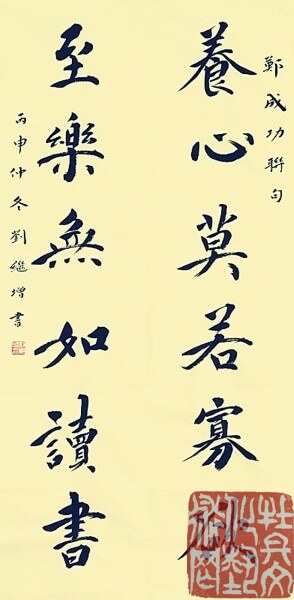 鄭成功聯句
養心莫若寡
至樂無如讀書
丙申仲冬劉繼增書